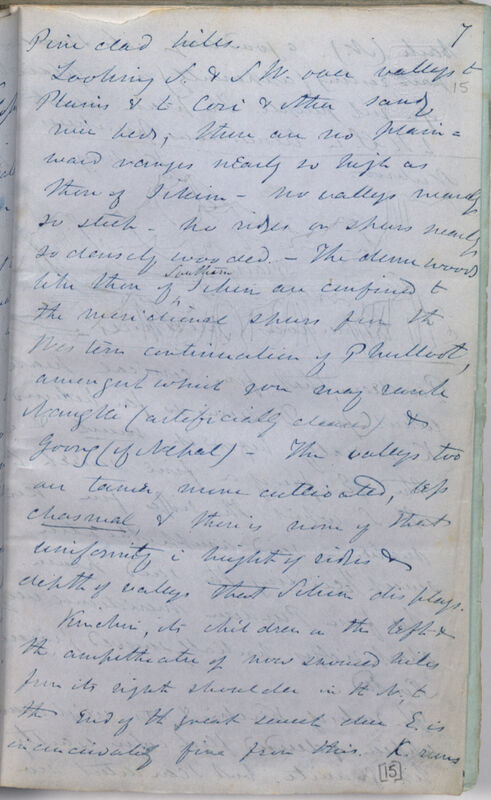 7
15
Pine clad hills.
Looking S. & S.W. over valleys to
Plains & to Cosi & other sandy
river beds; there are no plain=
ward ranges nearly so high as
those of Sikim - no valleys nearly
so steep - no ridges or spurs nearly
so densely wooded. - The dense woods
like those of Southern Sikim are confined to
the meridional spurs from the
Western continuation of Phulloot,
amongst which you may rank
Nanglki (artificially cleared) &
Goong (of Nepal) - The valleys too
are tamer, more cultivated, less
chasmal, & there is none of that
uniformity in height of ridges &
depth of valleys that Sikim displays.
Kinchin, its children on the left &
the ampitheatre of now snowed hills
from its right shoulder in the N, to
the end of the great sweep due E. is
inconceivably fine from this. K runs
[15]